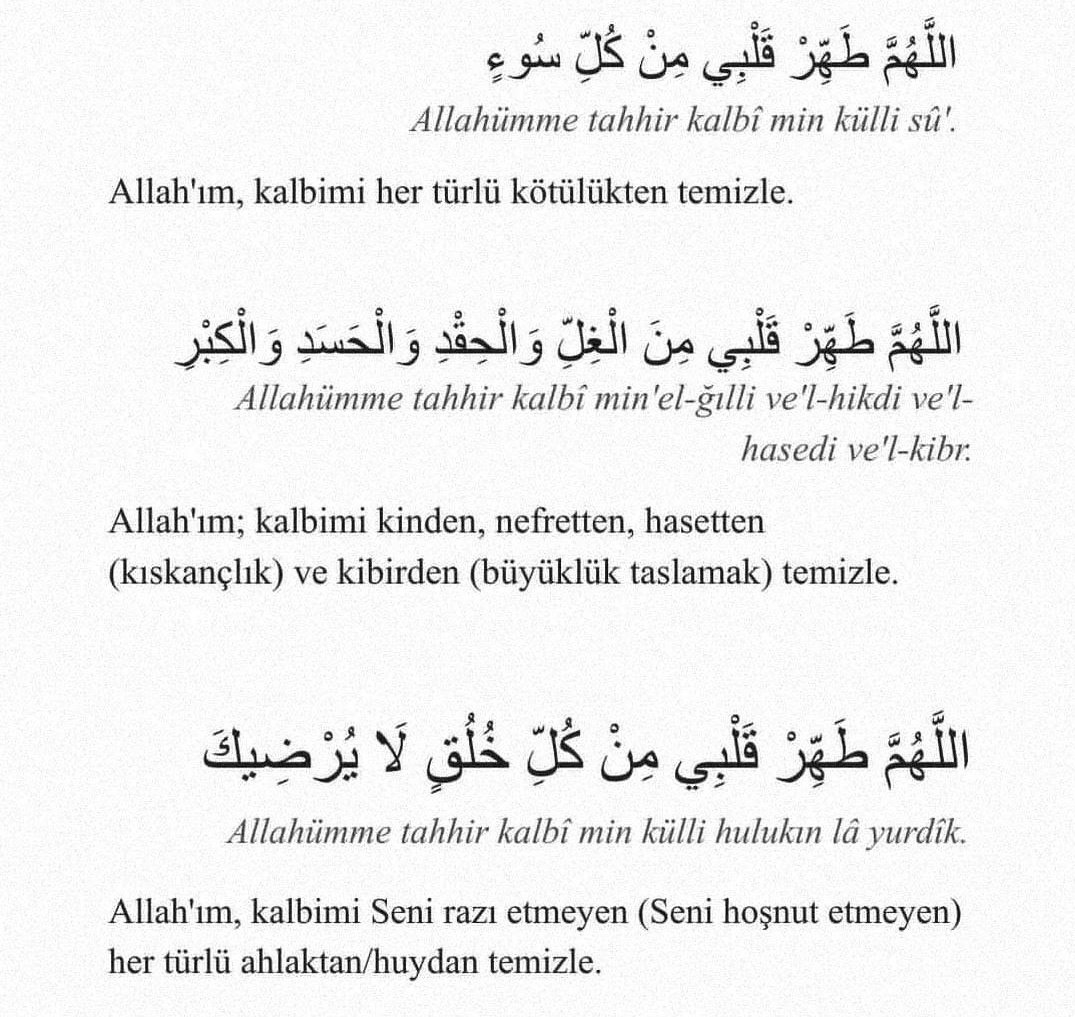 اللَّهُمَّ طَهِّرْ قَلْبِي مِنْ كُلِّ سُوءٍ
Allahümme tahhir kalbî min külli sû'.
Allah'ım, kalbimi her türlü kötülükten temizle.
اللَّهُمَّ طَهِّرْ قَلْبِي مِنَ الْغِلِّ وَالْحِقْدِ وَالْحَسَدِ وَالْكِبْرِ
Allahümme tahhir kalbî min'el-ğılli ve'l-hikdi ve'l-
hasedi ve'l-kibr.
Allah'ım; kalbimi kinden, nefretten, hasetten
(kıskançlık) ve kibirden (büyüklük taslamak) temizle.
اللَّهُمَّ طَهِّرْ قَلْبِي مِنْ كُلِّ خُلُقٍ لَا يُرْضِيكَ
Allahümme tahhir kalbî min külli hulukın lâ yurdîk.
Allah'ım, kalbimi Seni razı etmeyen (Seni hoşnut etmeyen)
her türlü ahlaktan/huydan temizle.